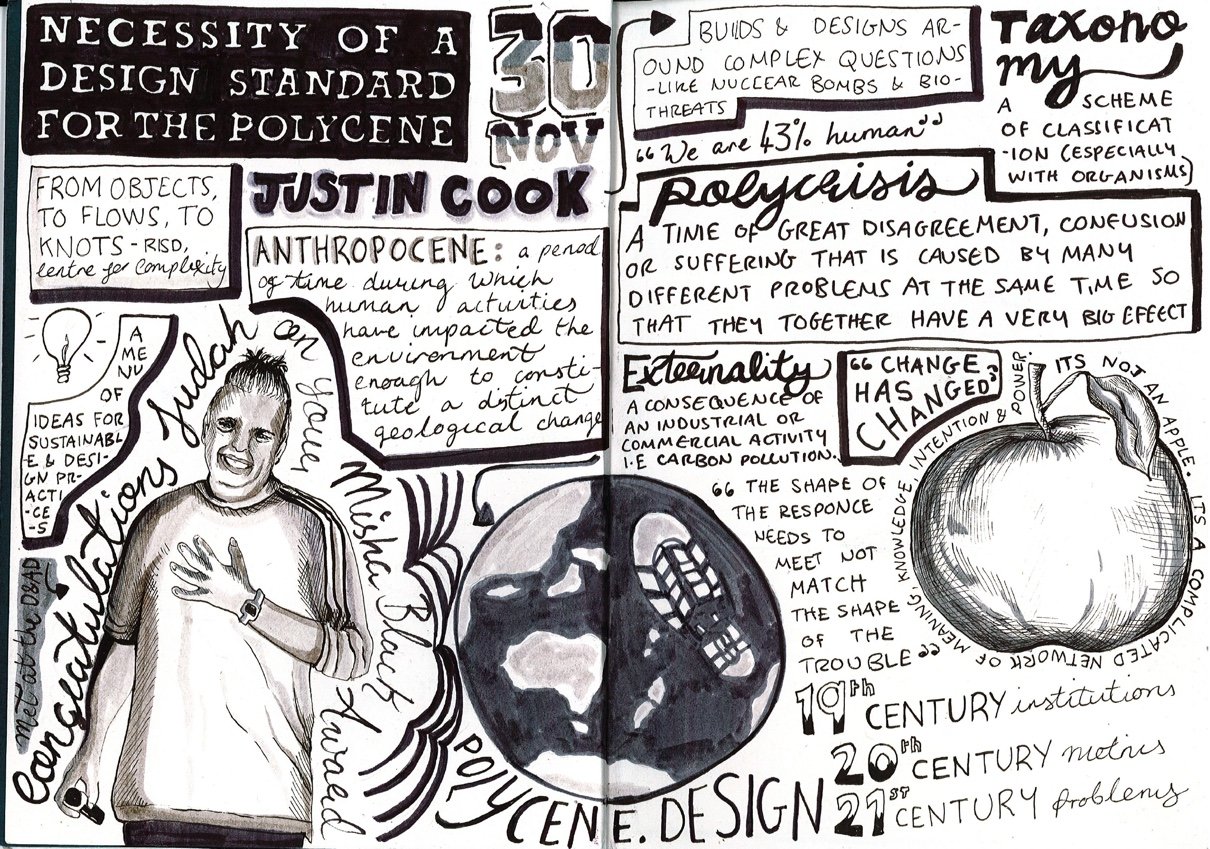 NECESSITY OF A
DESIGN STANDARD
FOR THE POLYCENE
30
NOV
JUSTIN COOK
FROM OBJECTS,
TO FLOWS, TO
KNOTS - RISD,
Centre for Complexity
ANTHROPOCENE: a period
of time during which
human activities
have impacted the
environment
enough to consti-
tute a distinct
geological change
A
ME
NU
OF
IDEAS FOR
SUSTAINABL
E & DESI-
GN PR-
ACTI
-CE
-S
Congratulations Judah on your Misha Black Award
Met at the D&AD
POLYCENE.DESIGN
BUILDS & DESIGNS AR-
OUND COMPLEX QUESTIONS
-LIKE NUCLEAR BOMBS & BIO-
THREATS
"We are 43% human"
Taxono
my
A SCHEME
OF CLASSIFICAT
-ION (ESPECIALLY
WITH ORGANISMS)
Polycrisis
A TIME OF GREAT DISAGREEMENT, CONFUSION
OR SUFFERING THAT IS CAUSED BY MANY
DIFFERENT PROBLEMS AT THE SAME TIME SO
THAT THEY TOGETHER HAVE A VERY BIG EFFECT
Externality
A CONSEQUENCE OF
AN INDUSTRIAL OR
COMMERCIAL ACTIVITY
I.E CARBON POLLUTION.
"CHANGE
HAS
CHANGED"
ITS NOT AN APPLE. ITS A COMPLICATED NETWORK OF MEANING, KNOWLEDGE, INTENTION & POWER.
"THE SHAPE OF
THE RESPONCE
NEEDS TO
MEET NOT
MATCH
THE SHAPE
OF THE
TROUBLE"
19th CENTURY institutions
20th CENTURY metrics
21ST CENTURY problems